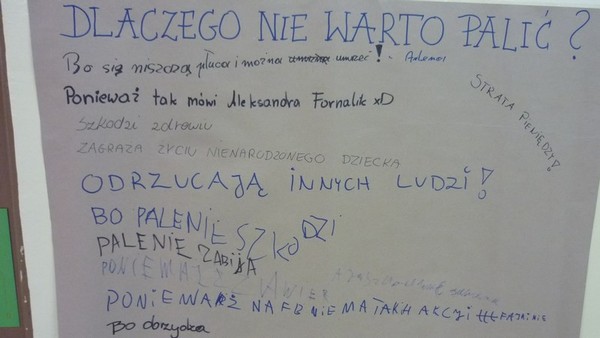 DLACZEGO NIE WARTO PALIĆ ?
Bo się niszczą płuca i można umrzeć!
Ponieważ tak mówi Aleksandra Fornalik xD
STRATA PIENIĘDZY!
Szkodzi zdrowiu
ZAGRAŻA ŻYCIU NIENARODZONEGO DZIECKA
ODRZUCAJĄ INNYCH LUDZI!
BO PALENIE SZKODZI
PALENIE ZABIJA
PONIEWAŻ
PONIEWAŻ NA FB NIE MA TAKICH AKCJI
Bo brzydko